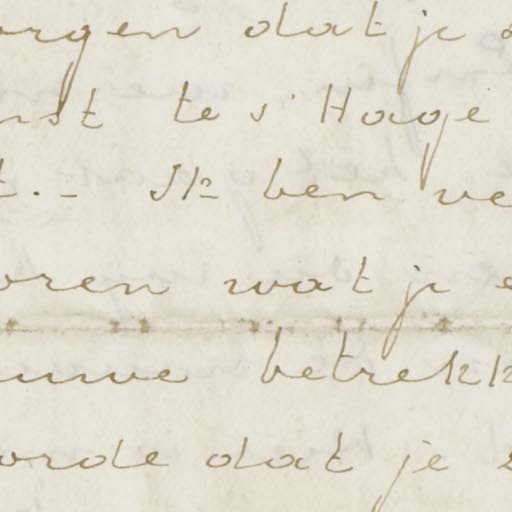 orgen dat je
nst te s' Hage
t. - Ik ben ve
oren wat je e
euwe betrekk
orde dat je